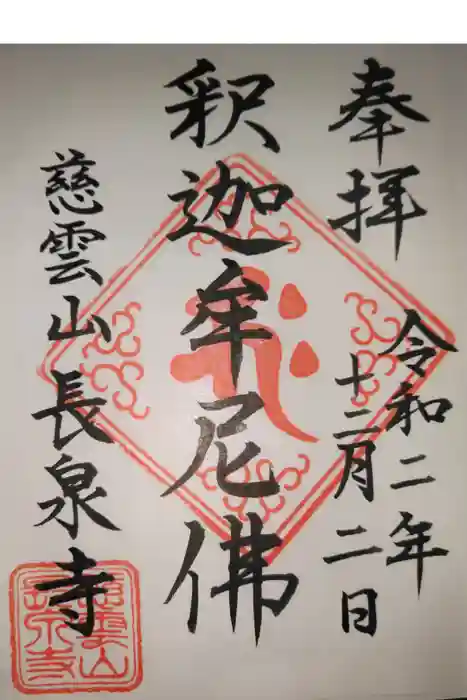 奉拝
令和二年
十二月二日
釈迦牟尼佛
慈雲山長泉寺
慈雲山
長泉寺